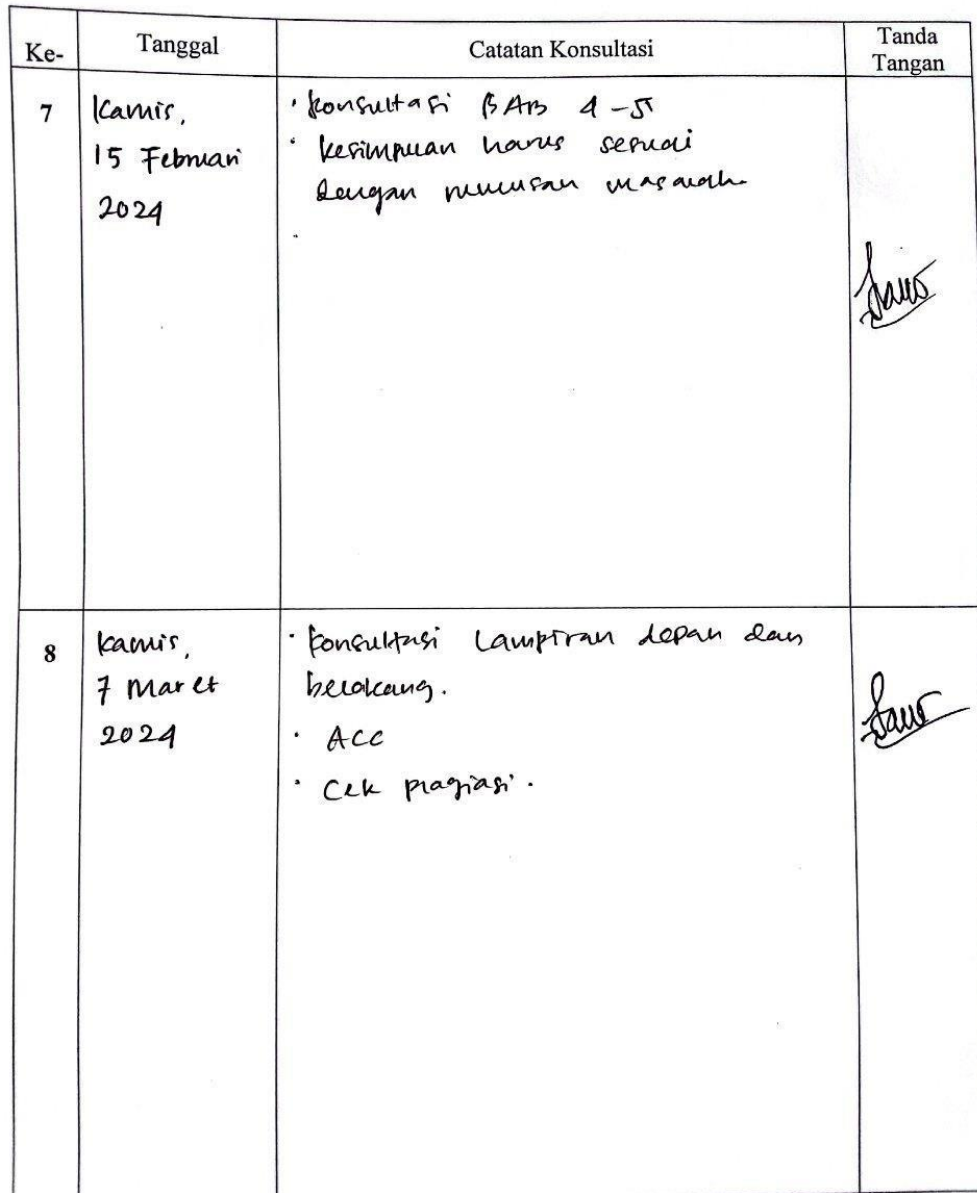 Ke-
Tanggal
Catatan Konsultasi
Tanda
Tangan
7
Kamis,
15 Februari
2024
· Konsultasi BAB 4-5
· Kesimpulan harus sesuai
dengan rumusan masalah.
8
Kamis,
7 Maret
2024
· Konsultasi Lampiran depan dan
belakang.
· ACC
· Cek plagiasi.